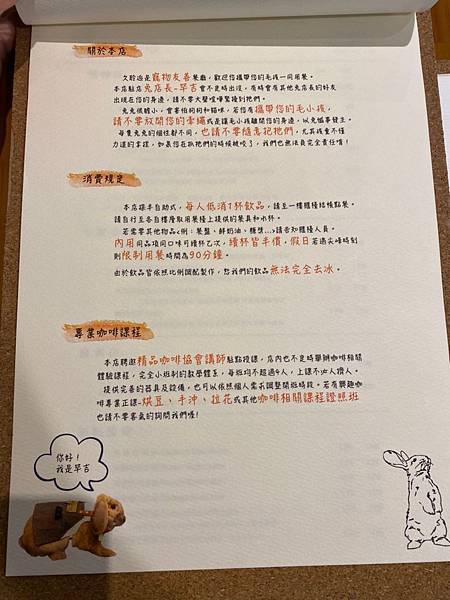 關於本店
久聆遊是寵物友善餐廳，歡迎您攜帶您的毛孩一同用餐。
本店駐店兔店長-早吉會不定時出現，有時會有其他兔店長的好友
出現在您的身邊，請不要大聲喧嘩驚擾到牠們。
兔兔很膽小，會害怕狗狗和貓咪，若您有攜帶您的毛小孩，
請不要放開您的牽繩或是讓毛小孩離開您的身邊，以免憾事發生。
每隻兔兔的個性都不同，也請不要隨意抱牠們，尤其孩童不懂
力道的拿捏，如果您在抓牠們的時候被咬了，我們也無法負完全責任唷！
消費規定
本店採半自助式，每人低消1杯飲品，請至一樓櫃檯結帳點餐。
請自行至各自樓層取用餐檯上提供的餐具和水杯。
若需要其他物品<例：餐盤、鮮奶油、糖漿...>請告知櫃檯人員。
內用同品項同口味可續杯乙次，續杯皆半價，假日若遇尖峰時刻
則限制用餐時間為90分鐘。
由於飲品皆依照比例調配製作，恕我們的飲品無法完全去冰。
專業咖啡課程
本店聘邀精品咖啡協會講師駐點授課，店內也不定時舉辦咖啡相關
體驗課程，完全小班制的教學體系，每班均不超過4人，上課不怕人擠人。
提供完善的器具及設備，也可以依照個人需求調整開班時段。若有興趣咖
啡專業正課-烘豆、手沖、拉花或其他咖啡相關課程證照班
也請不要客氣的詢問我們喔！
你好！
我是早吉